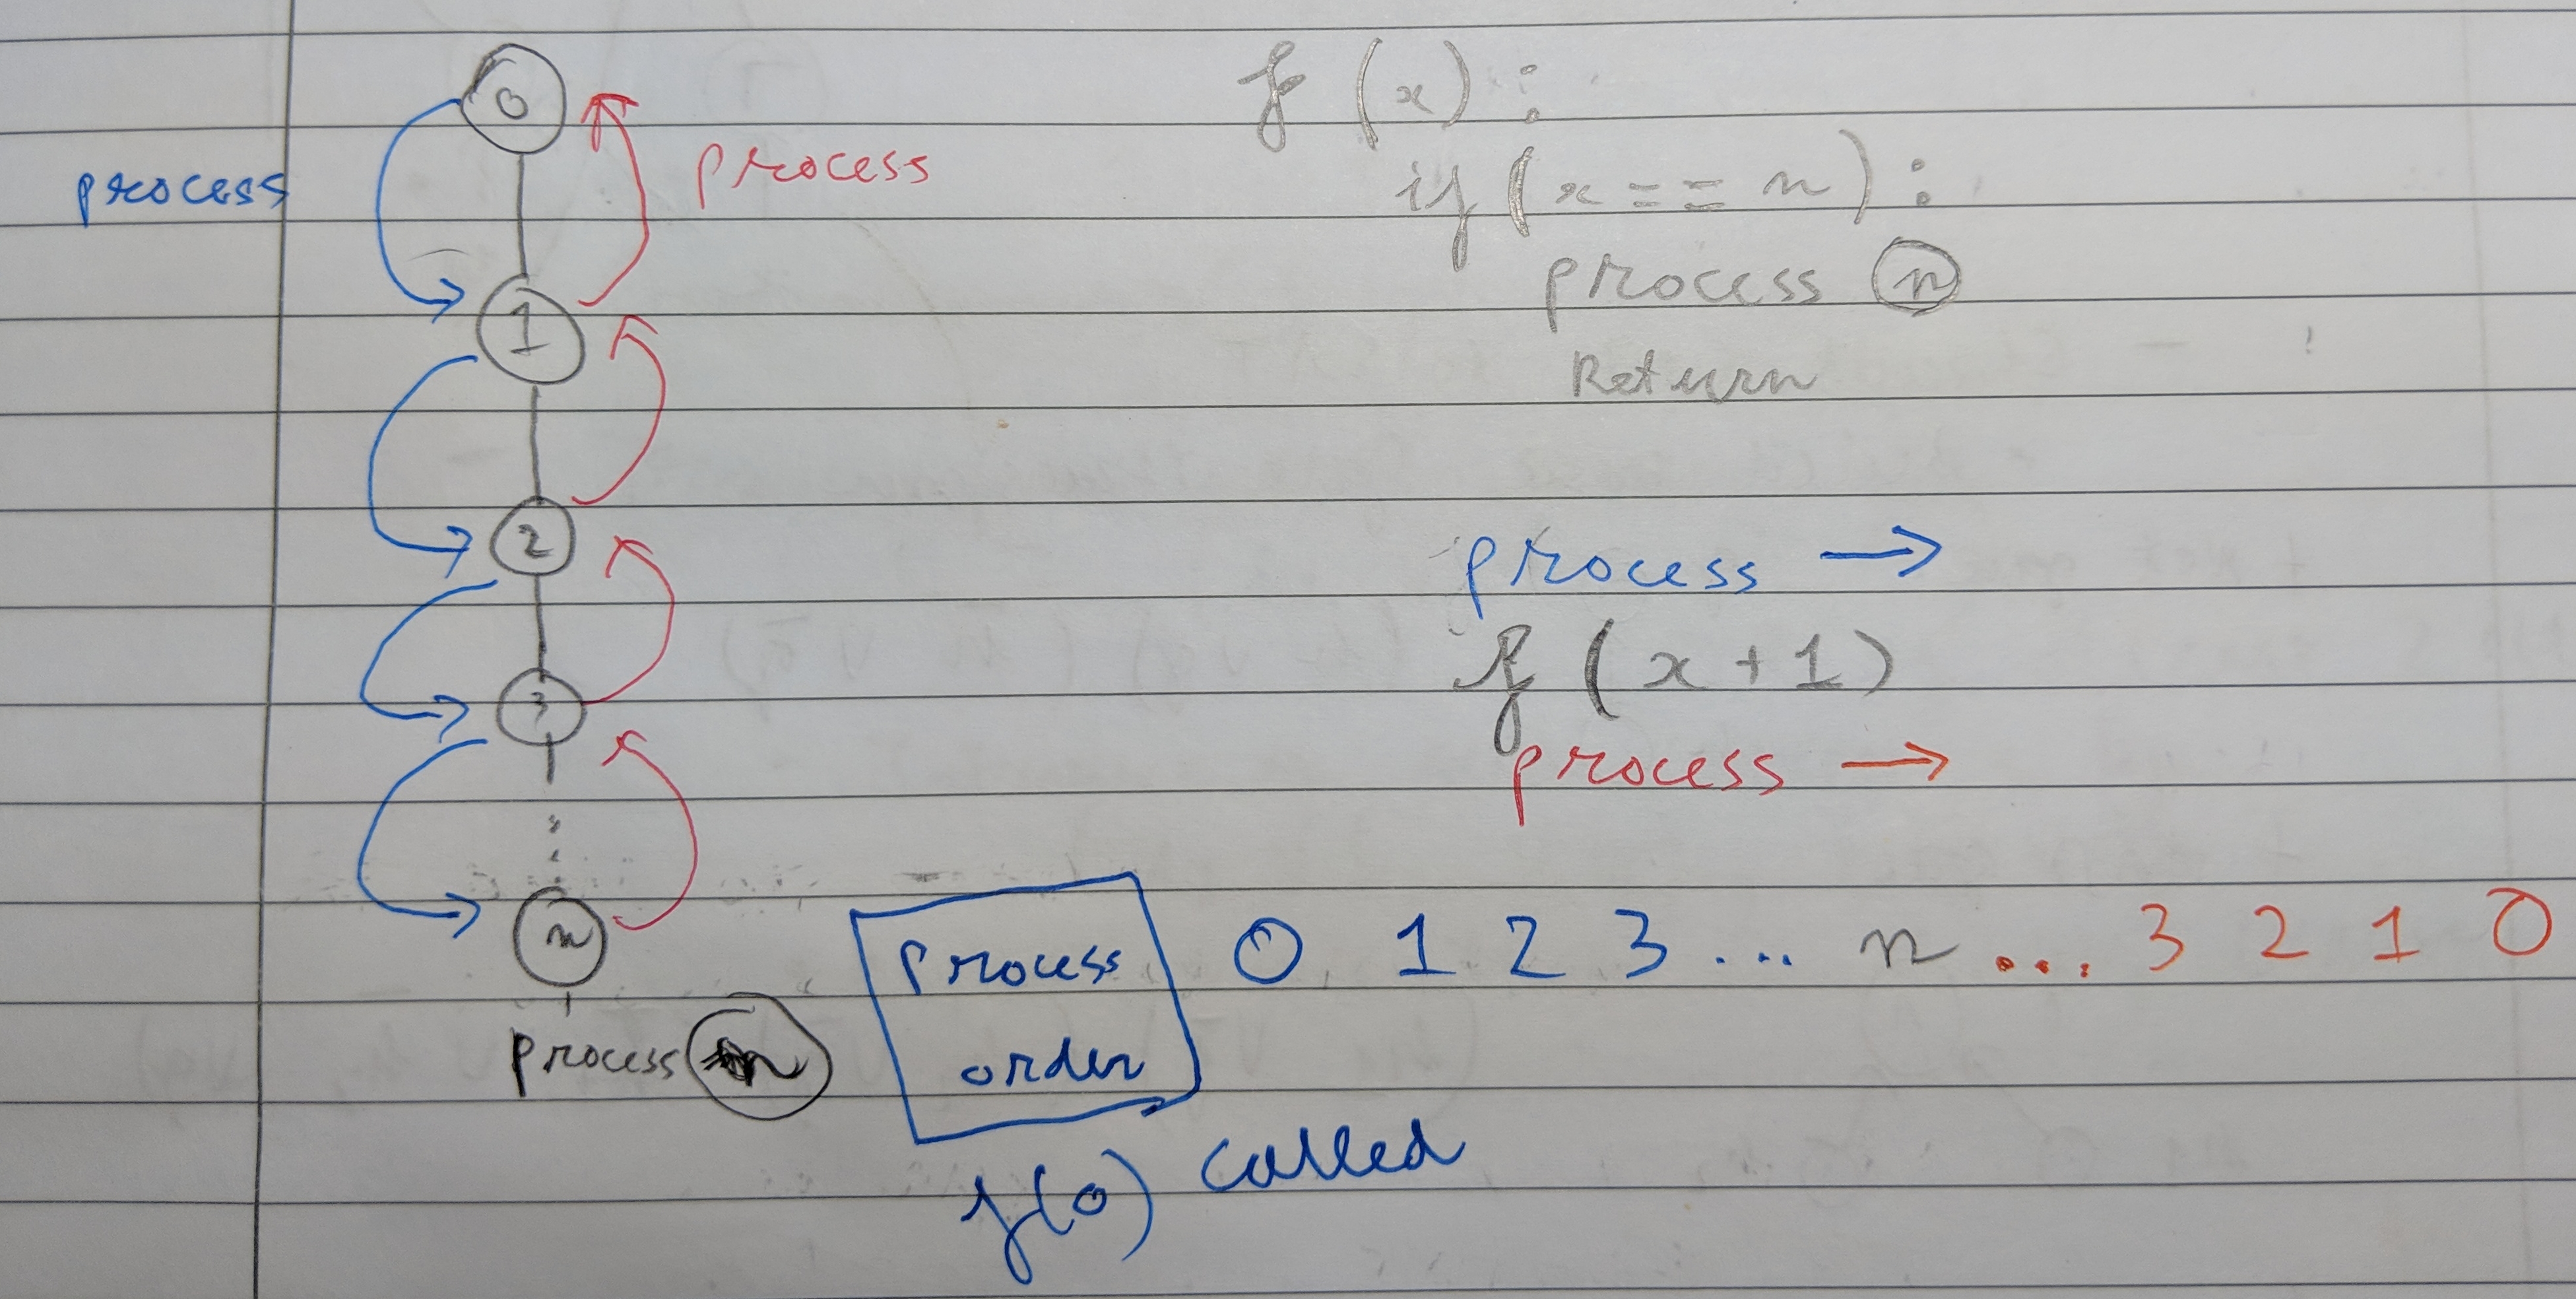 0
process
process
1
2
3
n
process n
f(x):
if(x==n):
process n
Return
process →
f(x+1)
process →
process
order
0 1 2 3 ... n ... 3 2 1 0
f(0) called